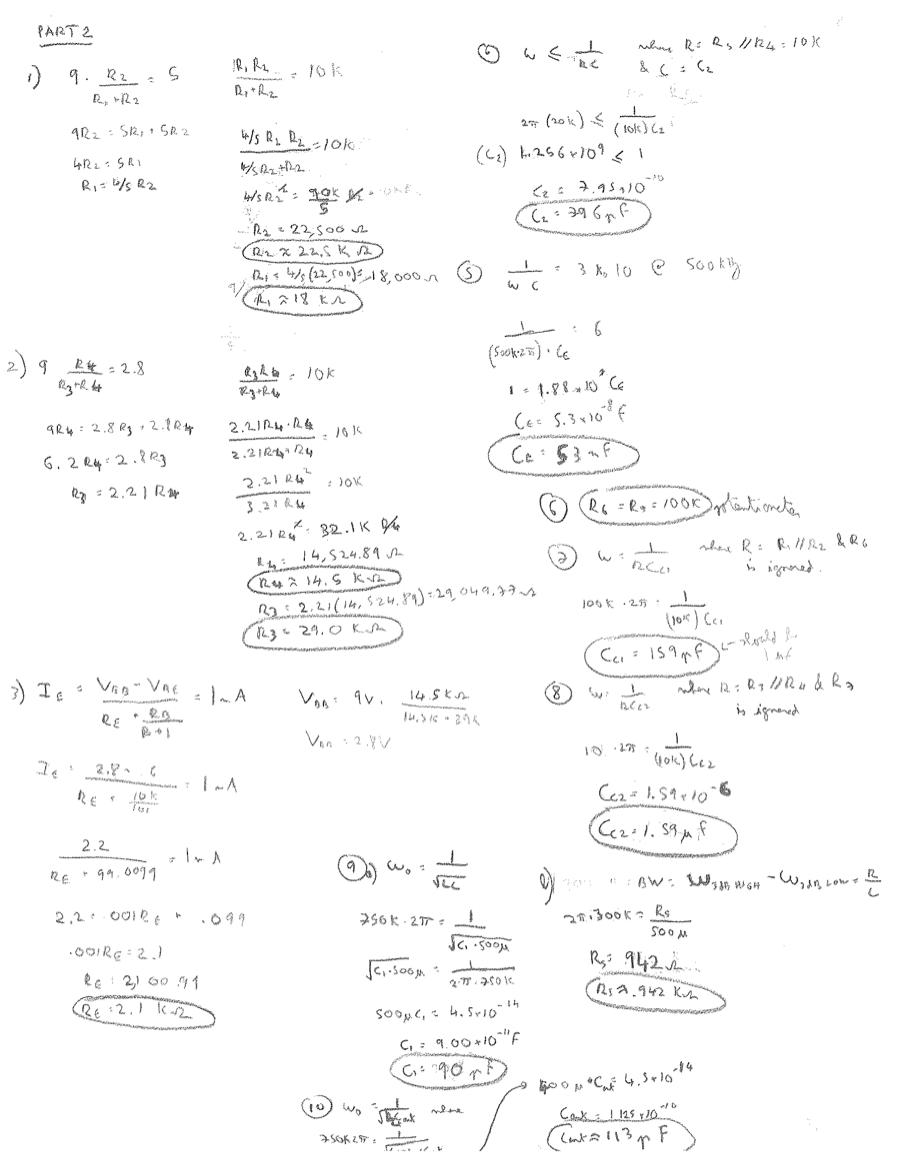 PART 2
1) 9 · R2 / (R1 + R2) = 5
9R2 = 5R1 + 5R2
4R2 = 5R1
R1 = 4/5 R2
R1 R2 / (R1 + R2) = 10K
4/5 R2 R2 / (4/5 R2 + R2) = 10K
4/5 R2² = 90K / 5 R2
R2 = 22,500 Ω
R2 ≈ 22.5 K Ω
R1 = 4/5 (22,500) = 18,000 Ω
R1 ≈ 18 K Ω
2) 9 R4 / (R3 + R4) = 2.8
9R4 = 2.8 R3 + 2.8 R4
6.2 R4 = 2.8 R3
R3 = 2.21 R4
R3 R4 / (R3 + R4) = 10K
2.21 R4 · R4 / (2.21 R4 + R4) = 10K
2.21 R4² / 3.21 R4 = 10K
2.21 R4² = 32.1K R4
R4 = 14,524.89 Ω
R4 ≈ 14.5 K Ω
R3 = 2.21(14,524.89) = 29,049.77 Ω
R3 = 29.0 K Ω
3) IE = (VBB - VBE) / (RE + RB / (β + 1)) = 1mA
IE = 2.8 - .6 / (RE + 10K / 101) = 1mA
2.2 / (RE + 99.0099) = 1mA
2.2 = .001RE + .099
.001RE = 2.1
RE = 2,100.99
RE = 2.1 KΩ
VBB = 9V · 14.5KΩ / (14.5K + 29K)
VBB = 2.8V
W ≤ 1 / RC where R = R3 // R4 = 10K
& C = C2
2π (20K) ≤ 1 / (10K) C2
(C2) 1.256×10⁹ ≤ 1
C2 = 7.95×10⁻¹⁰
C2 = 796 pF
5) 1 / W C = 3 @ 500kHz
1 / (500K·2π) · CE = 6
1 = 1.88×10⁷ CE
CE = 5.3×10⁻⁸ F
CE = 53 nF
6) R6 = R7 = 100K potentiometer
7) W = 1 / RCC1 where R = R1 // R2 & R6
is ignored.
100K · 2π = 1 / (10K) CC1
CC1 = 159 pF ← should be
1 nF
8) W = 1 / RCC2 where R = R3 // R4 & R7
is ignored
10 · 2π = 1 / (10K) CC2
CC2 = 1.59×10⁻⁶
CC2 = 1.59 μF
9) a) W0 = 1 / √LC
750K · 2π = 1 / √(C1 · 500μ)
√(C1 · 500μ) = 1 / 2·π·750K
500μC1 = 4.5×10⁻¹⁴
C1 = 9.00×10⁻¹¹ F
C1 = 90 pF
BW = W3dB HIGH - W3dB LOW = R / L
2π·300K = R5 / 500μ
R5 = 942 Ω
R5 ≈ .942 KΩ
10) W0 = where
750K2π =
Cant = 4.5×10⁻¹⁴
Cant = 1.125×10⁻¹⁰
Cant ≈ 113 pF